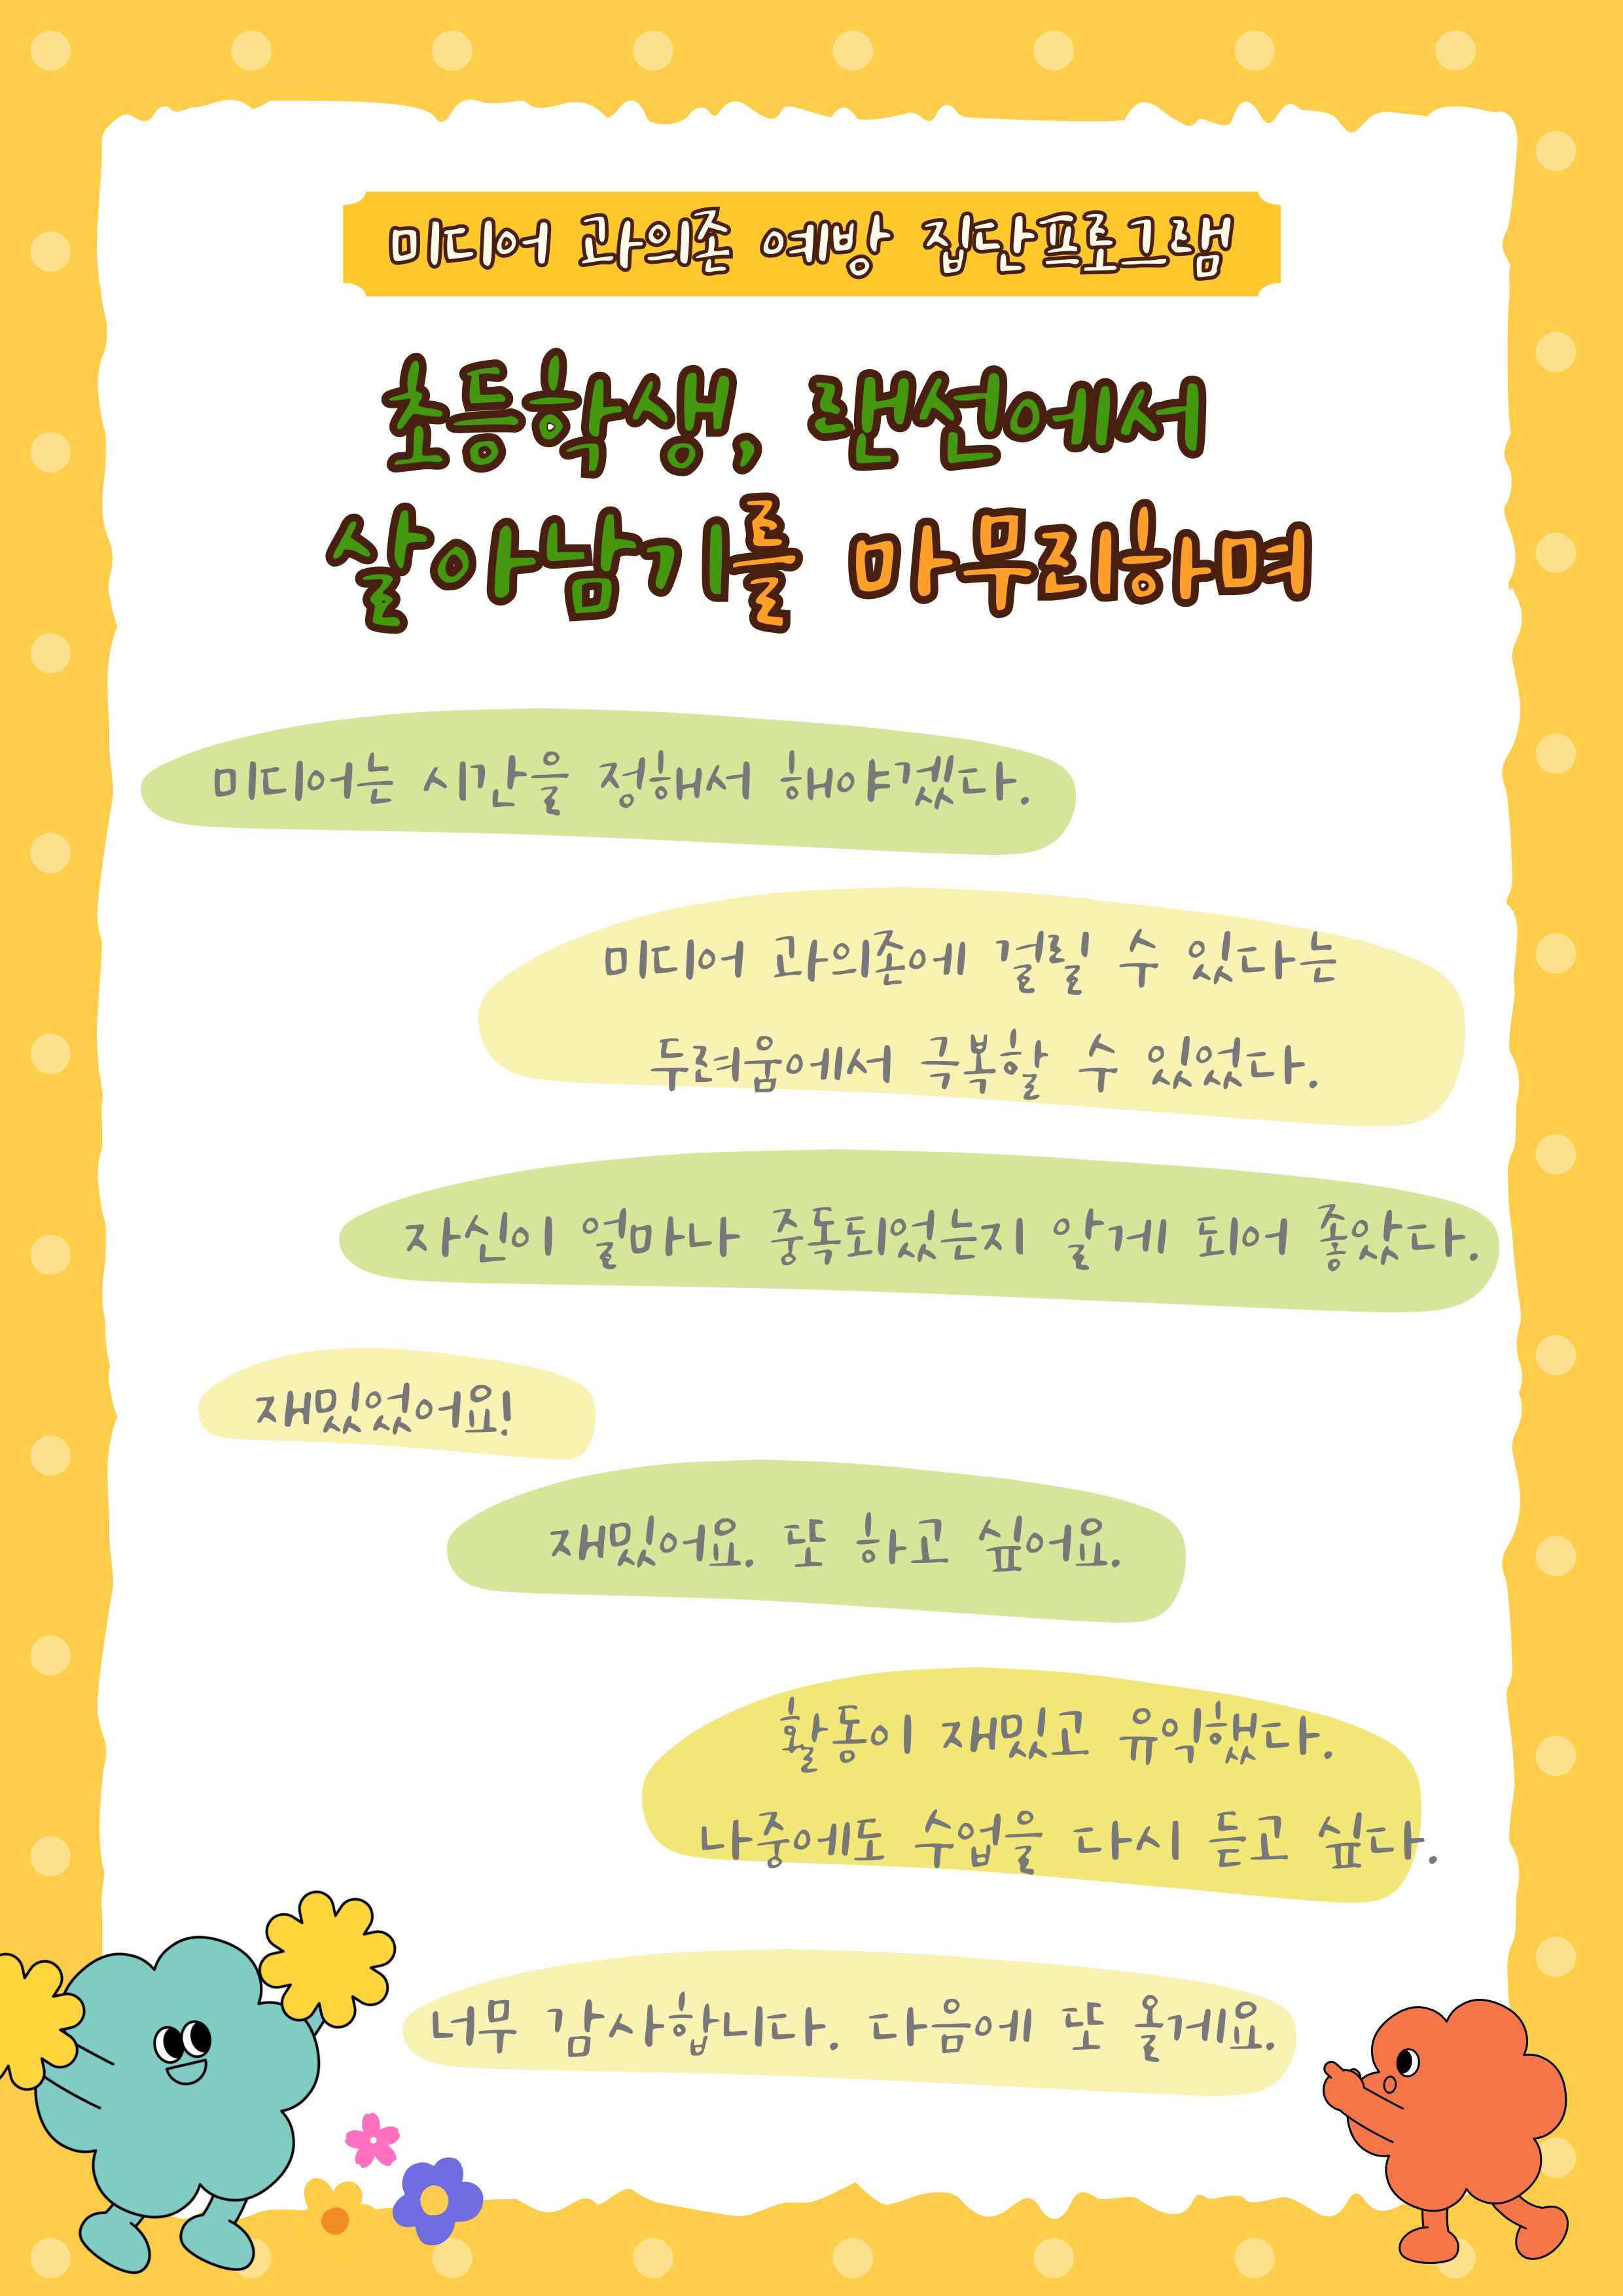 미디어 과의존 예방 집단프로그램
초등학생, 랜선에서
살아남기를 마무리하며
미디어는 시간을 정해서 해야겠다.
미디어 과의존에 걸릴 수 있다는
두려움에서 극복할 수 있었다.
자신이 얼마나 중독되었는지 알게 되어 좋았다.
재밌었어요!
재밌어요. 또 하고 싶어요.
활동이 재밌고 유익했다.
나중에도 수업을 다시 듣고 싶다.
너무 감사합니다. 다음에 또 올게요.